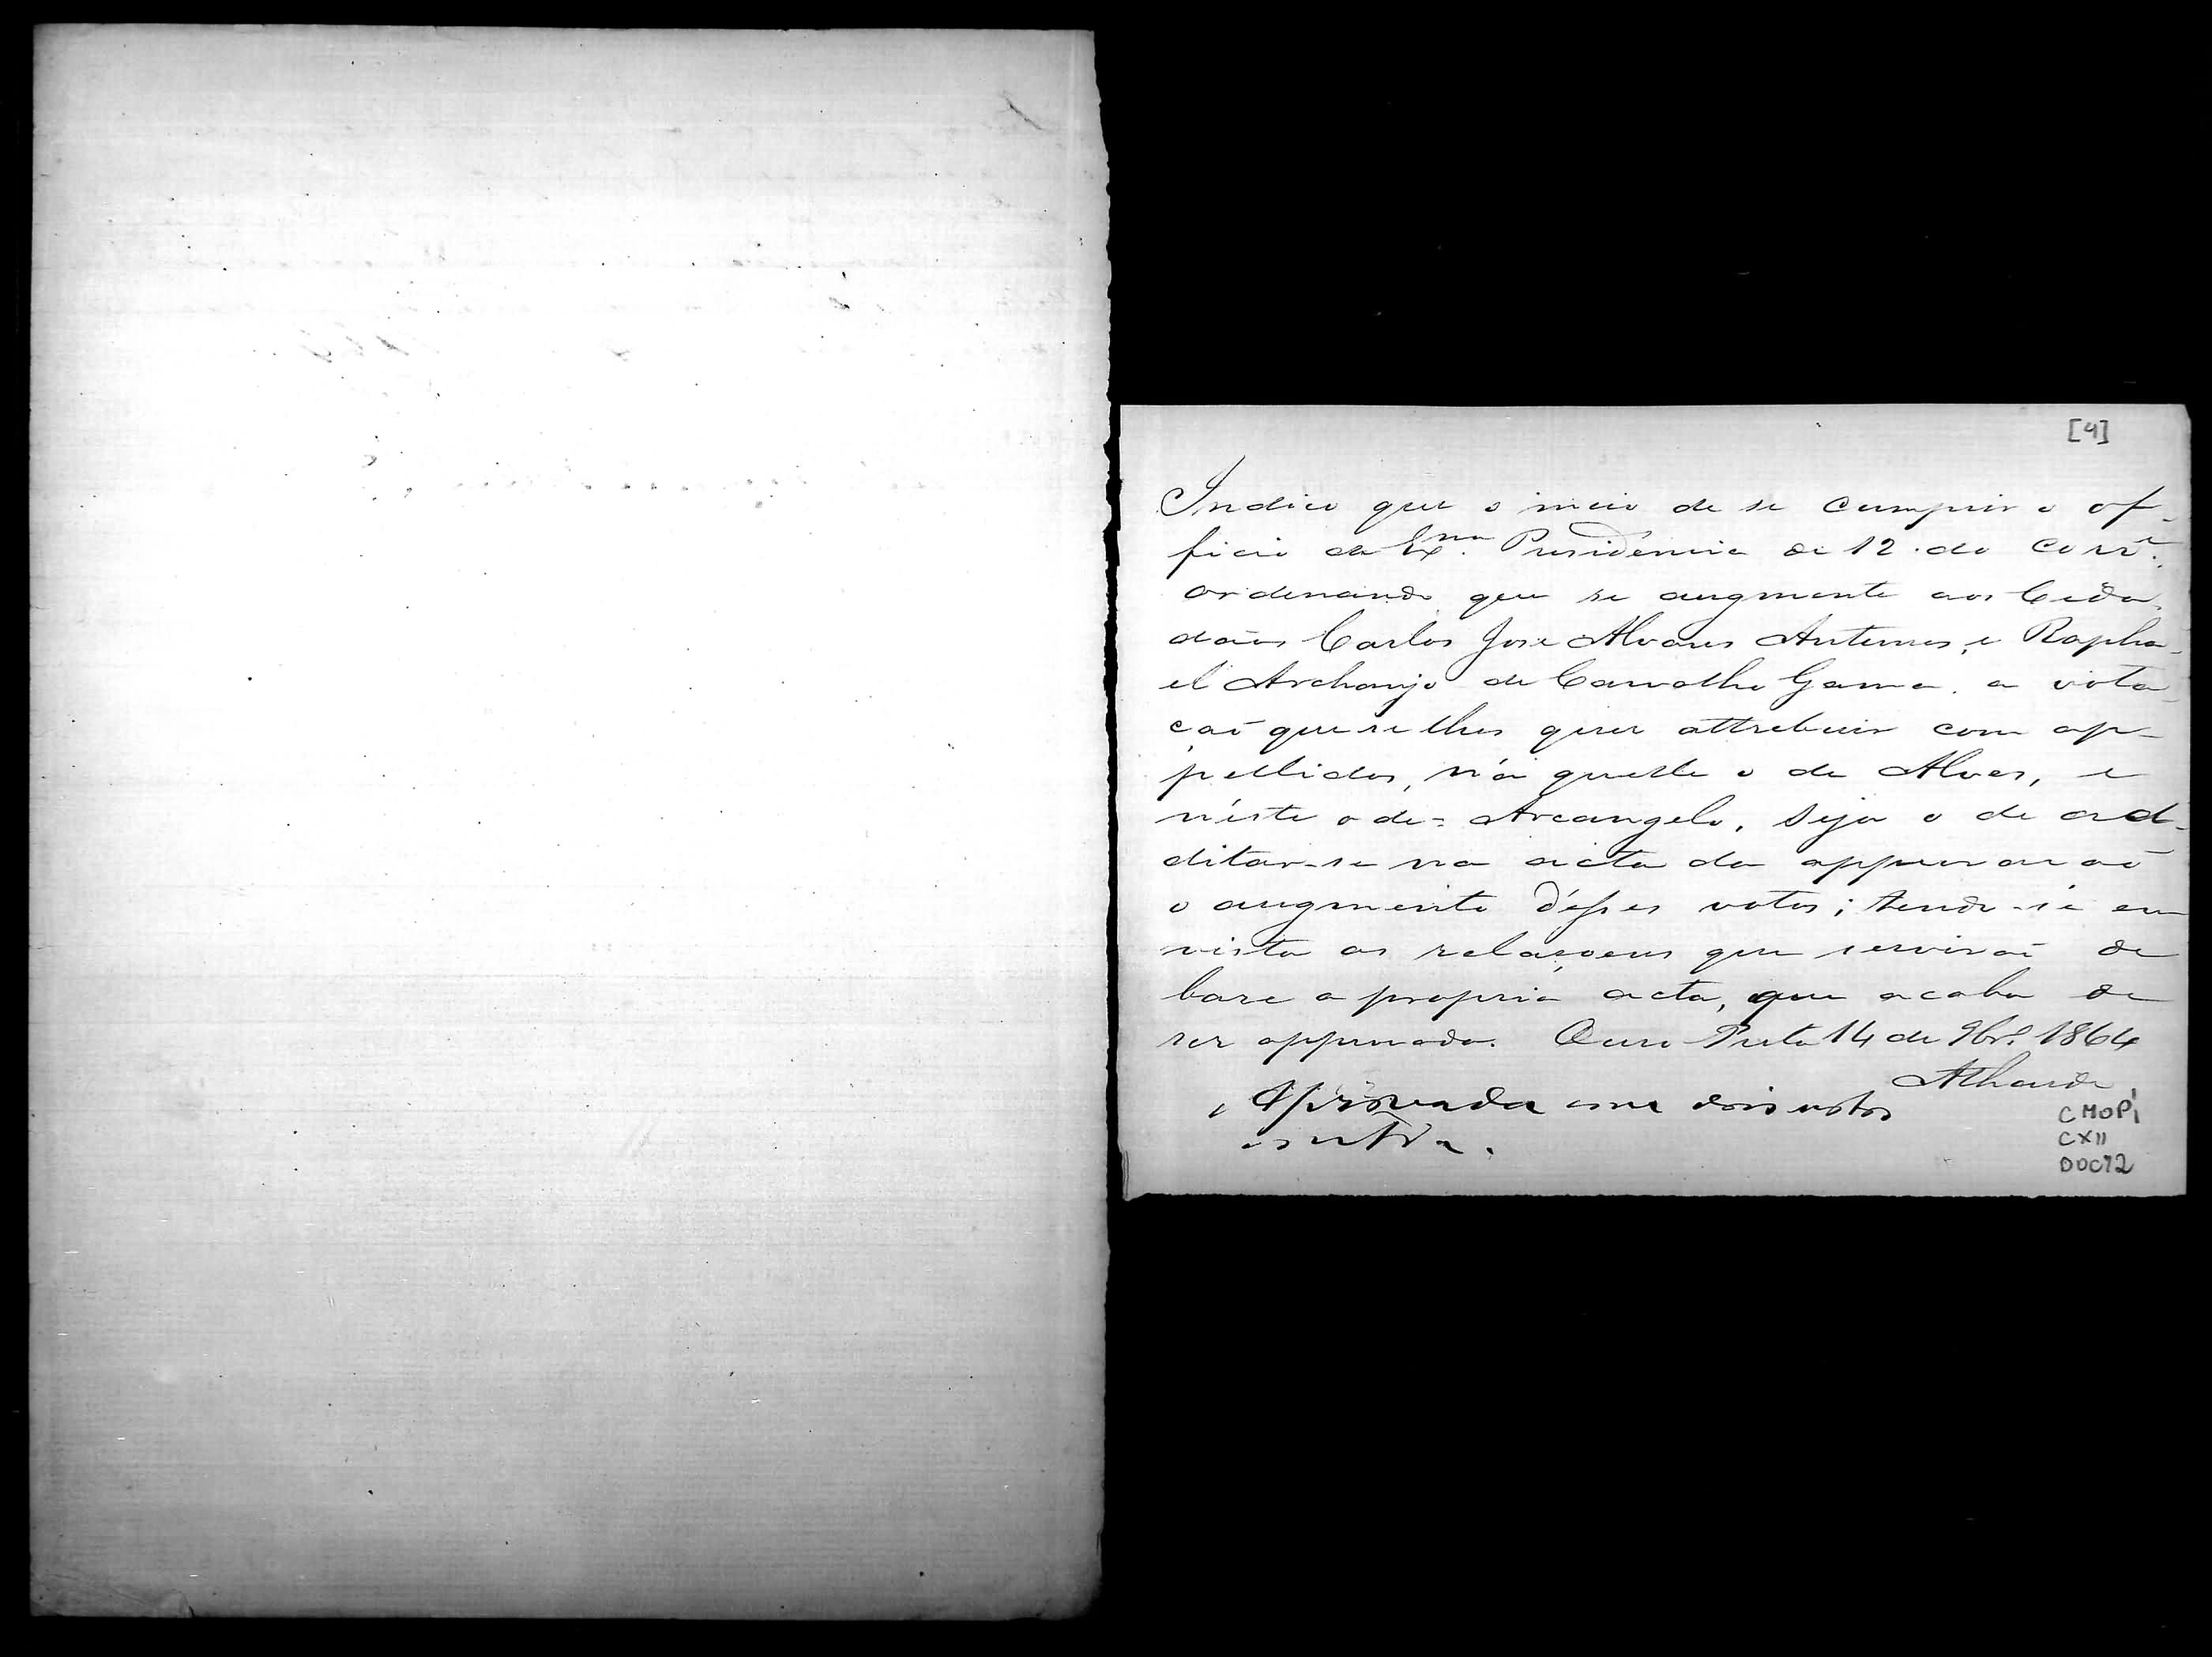 [4]
Indico que o meio de se cumprir o of-
ficio da Exma. Presidencia de 12 do Corre.
ordenando que se augmente aos Cida-
dãos Carlos José Alvares Antunes, e Rapha-
el Archanjo de Carvalho Gama. a vota-
çaõ que se lhes quer attrebuir com ap-
pellidos, n'a quelle o de Alves, e
n'éste o de = Arcangelo, seja o de ad-
ditar-se na acta da appuracaõ
o augmento d'ésses votos; tendo-se em
vista as relaçoens que serviraõ de
base a propria acta, que acaba de
ser approvada. Ouro Preto 14 de 9bro. 1864
Athaide
Approvada com dois votos
contra.
CMOPI
CXII
DOC72